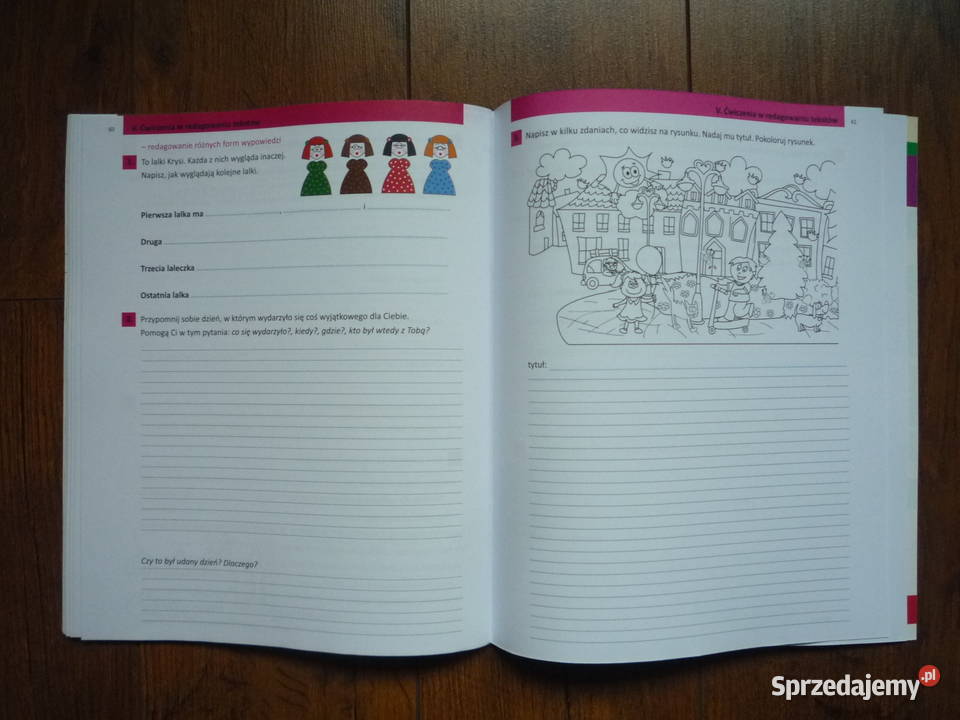 60
V. Ćwiczenia w redagowaniu tekstów
– redagowanie różnych form wypowiedzi
To lalki Krysi. Każda z nich wygląda inaczej.
Napisz, jak wyglądają kolejne lalki.
Pierwsza lalka ma
Druga
Trzecia laleczka
Ostatnia lalka
Przypomnij sobie dzień, w którym wydarzyło się coś wyjątkowego dla Ciebie.
Pomogą Ci w tym pytania: co się wydarzyło?, kiedy?, gdzie?, kto był wtedy z Tobą?
Czy to był udany dzień? Dlaczego?
V. Ćwiczenia w redagowaniu tekstów
61
Napisz w kilku zdaniach, co widzisz na rysunku. Nadaj mu tytuł. Pokoloruj rysunek.
tytuł:
Sprzedajemy.pl